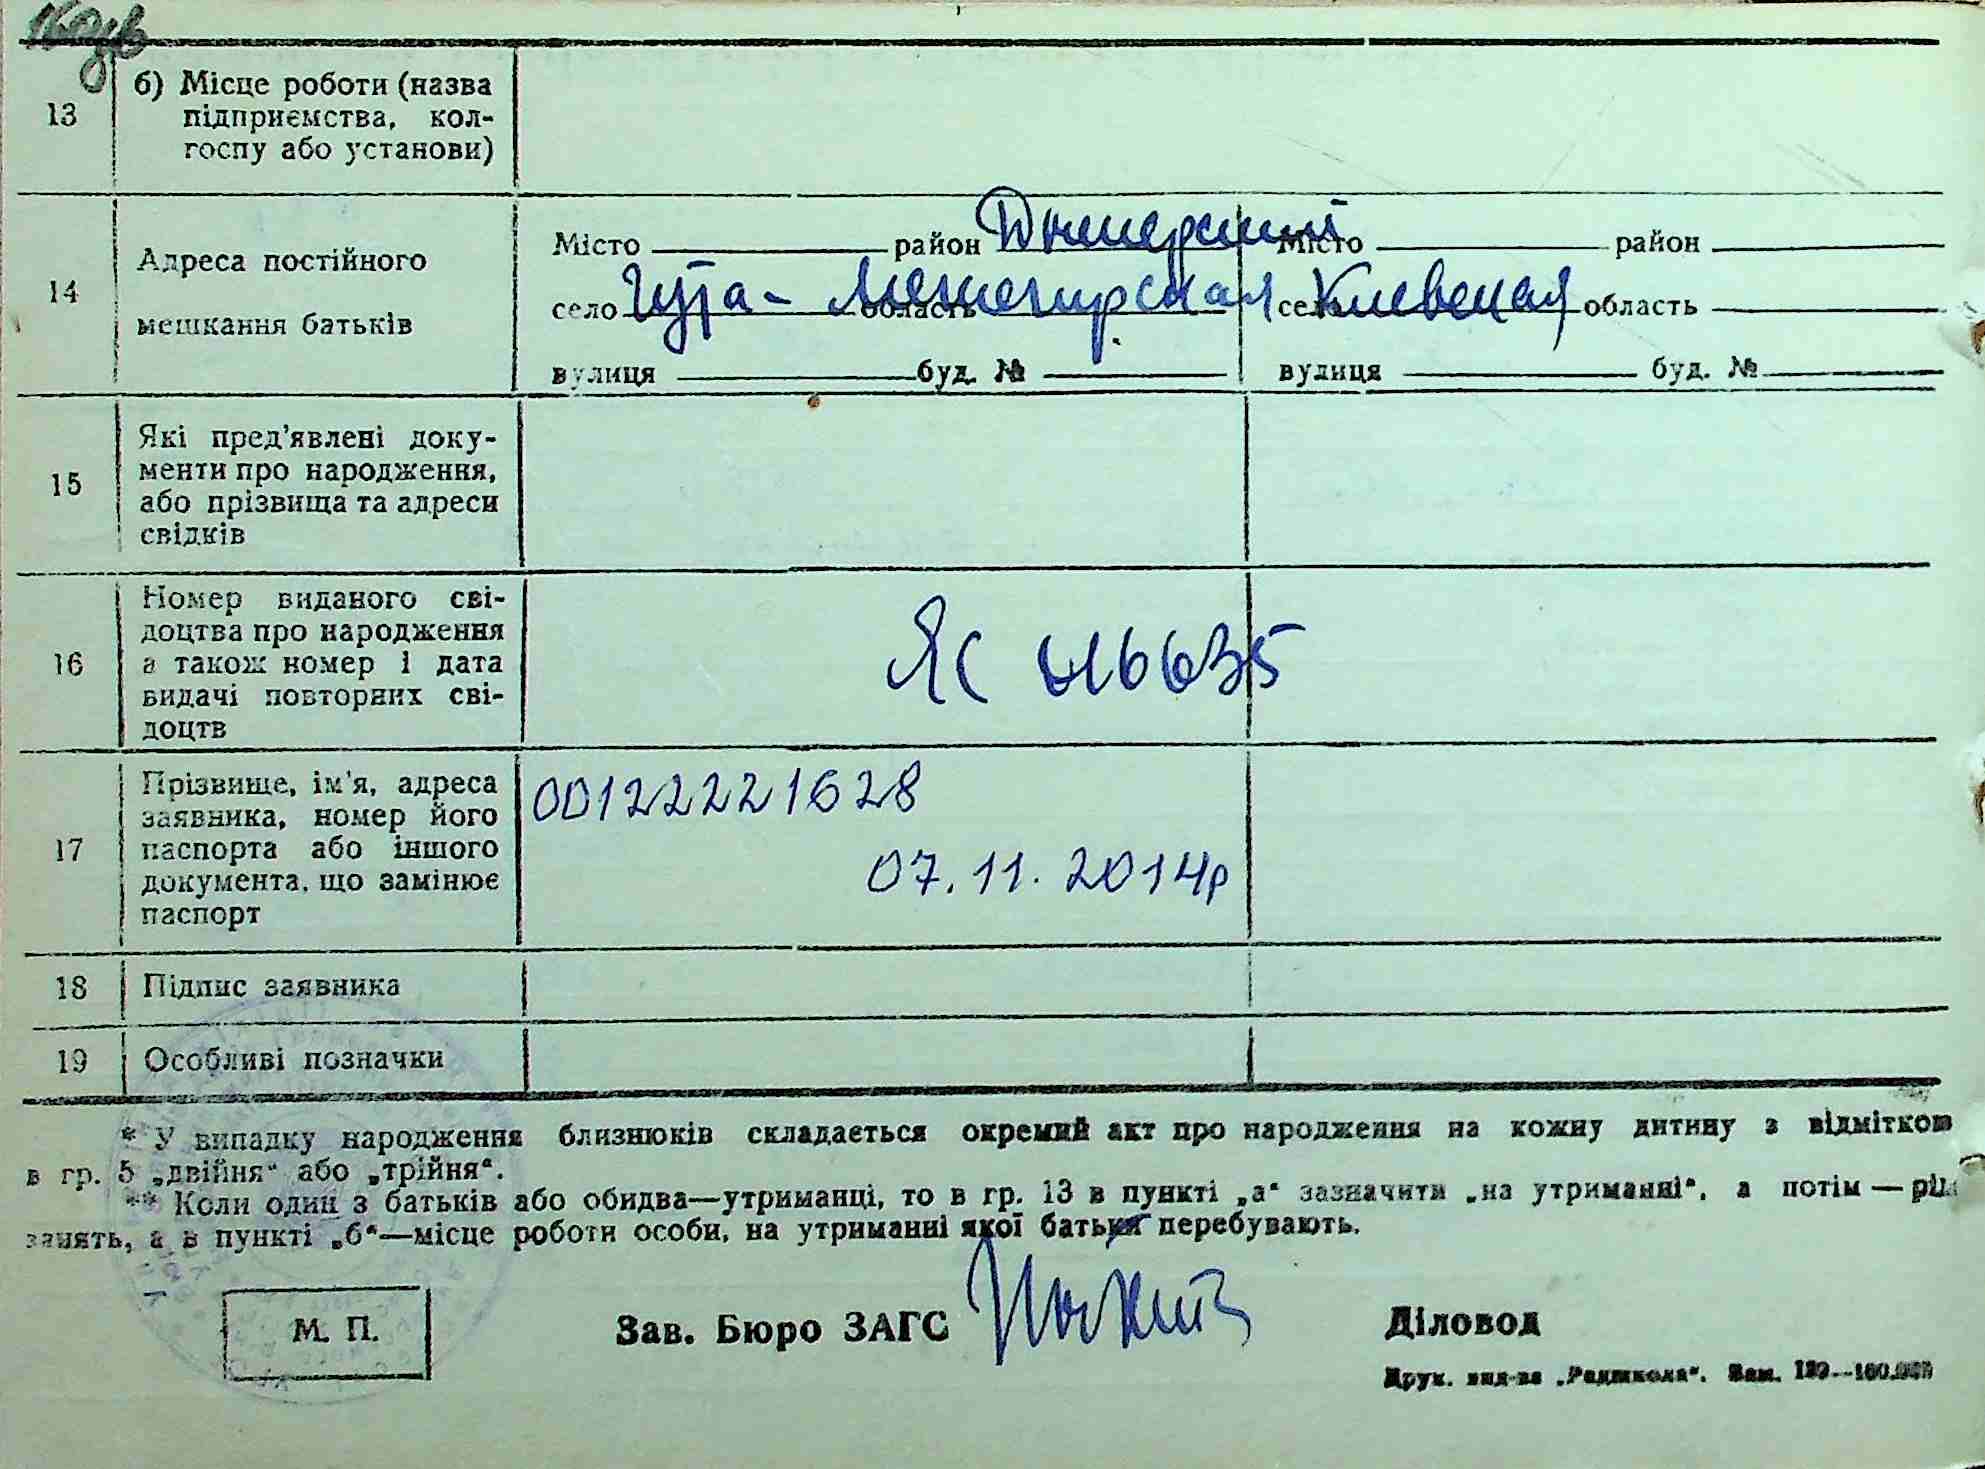 160зв
13 б) Місце роботи (назва
підприємства, кол-
госпу або установи)
14 Адреса постійного
мешкання батьків
Місто район Дымерский Місто район
село Гута-Межегирская область село Киевская область
вулиця буд. № вулиця буд. №
15 Які пред'явлені доку-
менти про народження,
або прізвища та адреси
свідків
16 Номер виданого сві-
доцтва про народження
а також номер і дата
видачі повторних сві-
доцтв
ЯС 016635
17 Прізвище, ім'я, адреса
заявника, номер його
паспорта або іншого
документа, що замінює
паспорт
00122221628
07.11.2014р
18 Підпис заявника
19 Особливі позначки
* У випадку народження близнюків складається окремий акт про народження на кожну дитину з відміткою
в гр. 5 „двійня“ або „трійня“.
** Коли один з батьків або обидва—утриманці, то в гр. 13 в пункті „а“ зазначити „на утриманні“, а потім — рід
занять, а в пункті „б“—місце роботи особи, на утриманні якої батьки перебувають.
М. П.
Зав. Бюро ЗАГС
Діловод
Друк. вид-ва „Радшкола“. Зам.